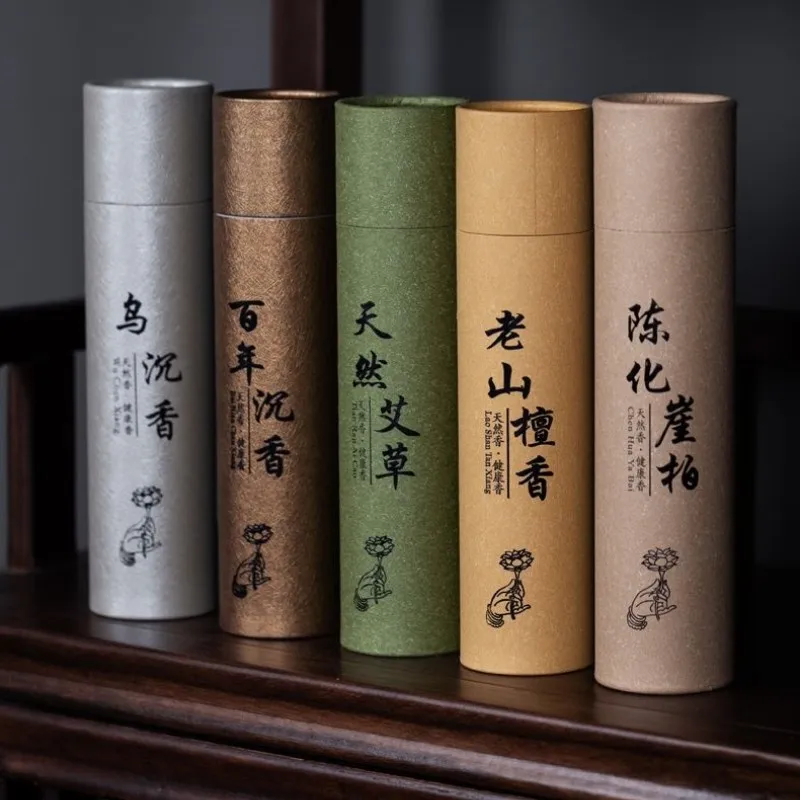 乌
沉香
天然香·健康香
Wu Chen Xiang
百年
沉香
天然香·健康香
Bai Nian Chen Xiang
天然
艾草
天然香·健康香
Tian Ran Ai Cao
老山
檀香
天然香·健康香
Lao Shan Tan Xiang
陈化
崖柏
天然香·健康香
Chen Hua Ya Bai